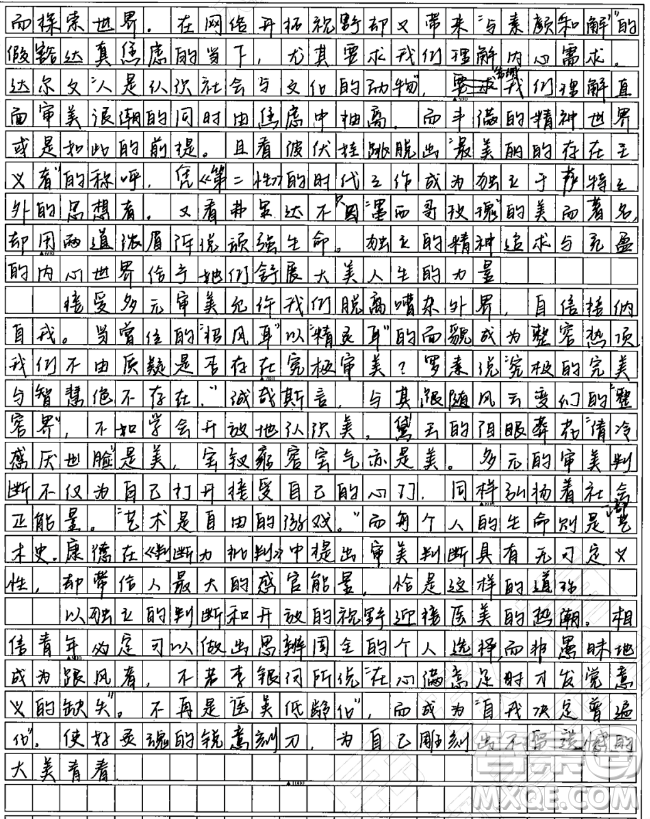 而探索世界。在网络开拓视野却又带来“与素颜和解”的
假豁达真焦虑的当下，尤其要求我们理解内心需求。
达尔文“人是认识社会与文化的动物”，我们理解直
面审美浪潮的同时由焦虑中抽离。而丰满的精神世界
或是如此的前提。且看波伏娃跳脱出“最美丽的存在主
义者”的称呼，凭《第二性》的时代之作成为独立于
外的思想者。又看弗里达不因“墨西哥玫瑰”的美而著名，
却用两道浓眉诉说顽强生命。独立的精神追求与充盈
的内心世界给予她们舒展大美人生的力量
接受多元审美允许我们脱离嘈杂外界，自信接纳
自我。当曾经的“招风耳”以“精灵耳”的面貌成为整容热项
我们不由质疑是否存在究极审美？罗素说“究极的完美
与智慧绝不存在，”诚哉斯言，与其跟随风云变幻的“整
容界”，不如学会开放地认识美，黛玉的泪眼“清冷
感厌世脸”是美，宝钗雍容宝气亦是美。多元的审美判
断不仅为自己打开接受自己的心门，同样弘扬着社会
正能量。“艺术是自由的游戏。”而每个人的生命则是艺
术史。康德在《判断力批判》中提出审美判断具有无可定义
性，却带给人最大的感官能量，恰是这样的道
以独立的判断和开放的视野迎接医美的热潮。相
信青年必定可以做出思辨周全的个人选择，而非愚昧地
成为跟风者，不若李银河所说“在心满意足时才发觉意
义的缺失”。不再是“医美低龄化”，而成为“自我决定普遍
化”。使好灵魂的锐意刻刀，为自己雕刻出不留遗憾的
大美青春